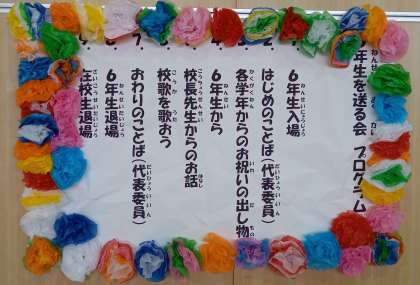 年生を送る会 プログラム
6年生入場
はじめのことば（代表委員）
各学年からのお祝いの出し物
6年生から
校長先生からのお話
校歌を歌おう
おわりのことば（代表委員）
6年生退場
在校生退場